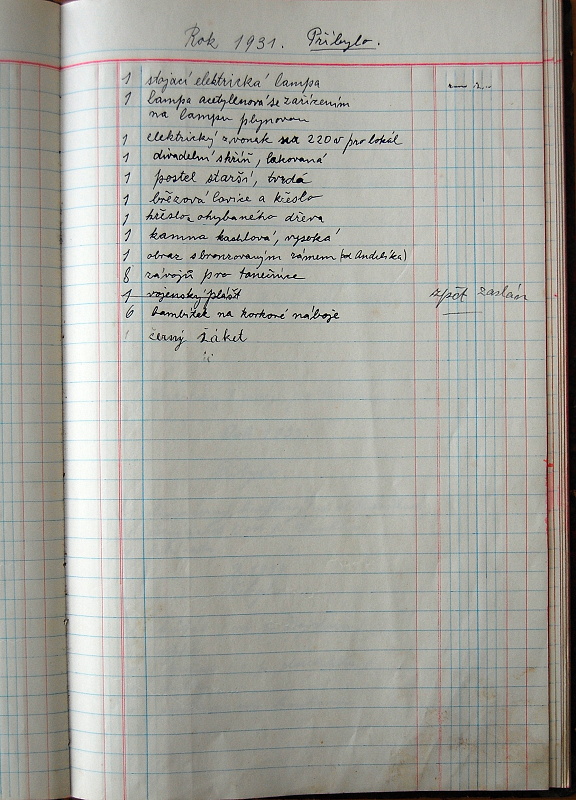 Rok 1931. Přibylo.
1 stojací elektrická lampa
1 lampa acetylenová se zařízením
na lampu plynovou
1 elektrický zvonek na 220 v pro lokál
1 divadelní skříň, lakovaná
1 postel starší, tvrdá
1 březová lavice a křeslo
1 křeslo z ohýbaného dřeva
1 kamna kachlová, vysoká
1 obraz s bronzovaným rámem (od Andělíka)
8 závojů pro tanečnice
1 vojenský plášť zpět zaslán
6 bambitek na korkové náboje
1 černý žaket